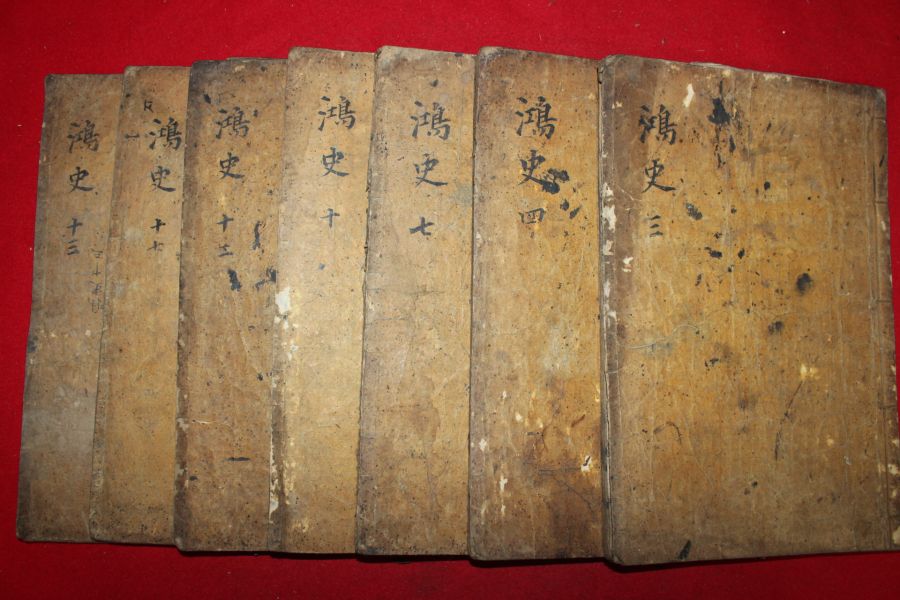 鴻史 三
鴻史 四
鴻史 七
鴻史 十
鴻史 十二
鴻史 十七
鴻史 十三